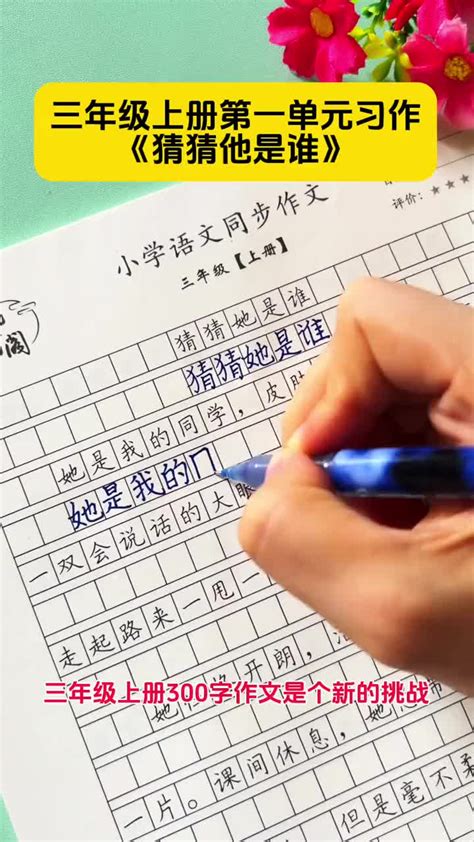 三年级上册第一单元习作
《猜猜他是谁》
评价：★★★
小学语文同步作文
三年级【上册】
阁
猜猜她是谁
猜猜她是谁
她是我的同学，皮肤
她是我的冂
一双会说话的大眼
走起路来一甩一
开朗，活
三年级上册300字作文是个新的挑战
一片。课间休息，她总带
但是毫不柔